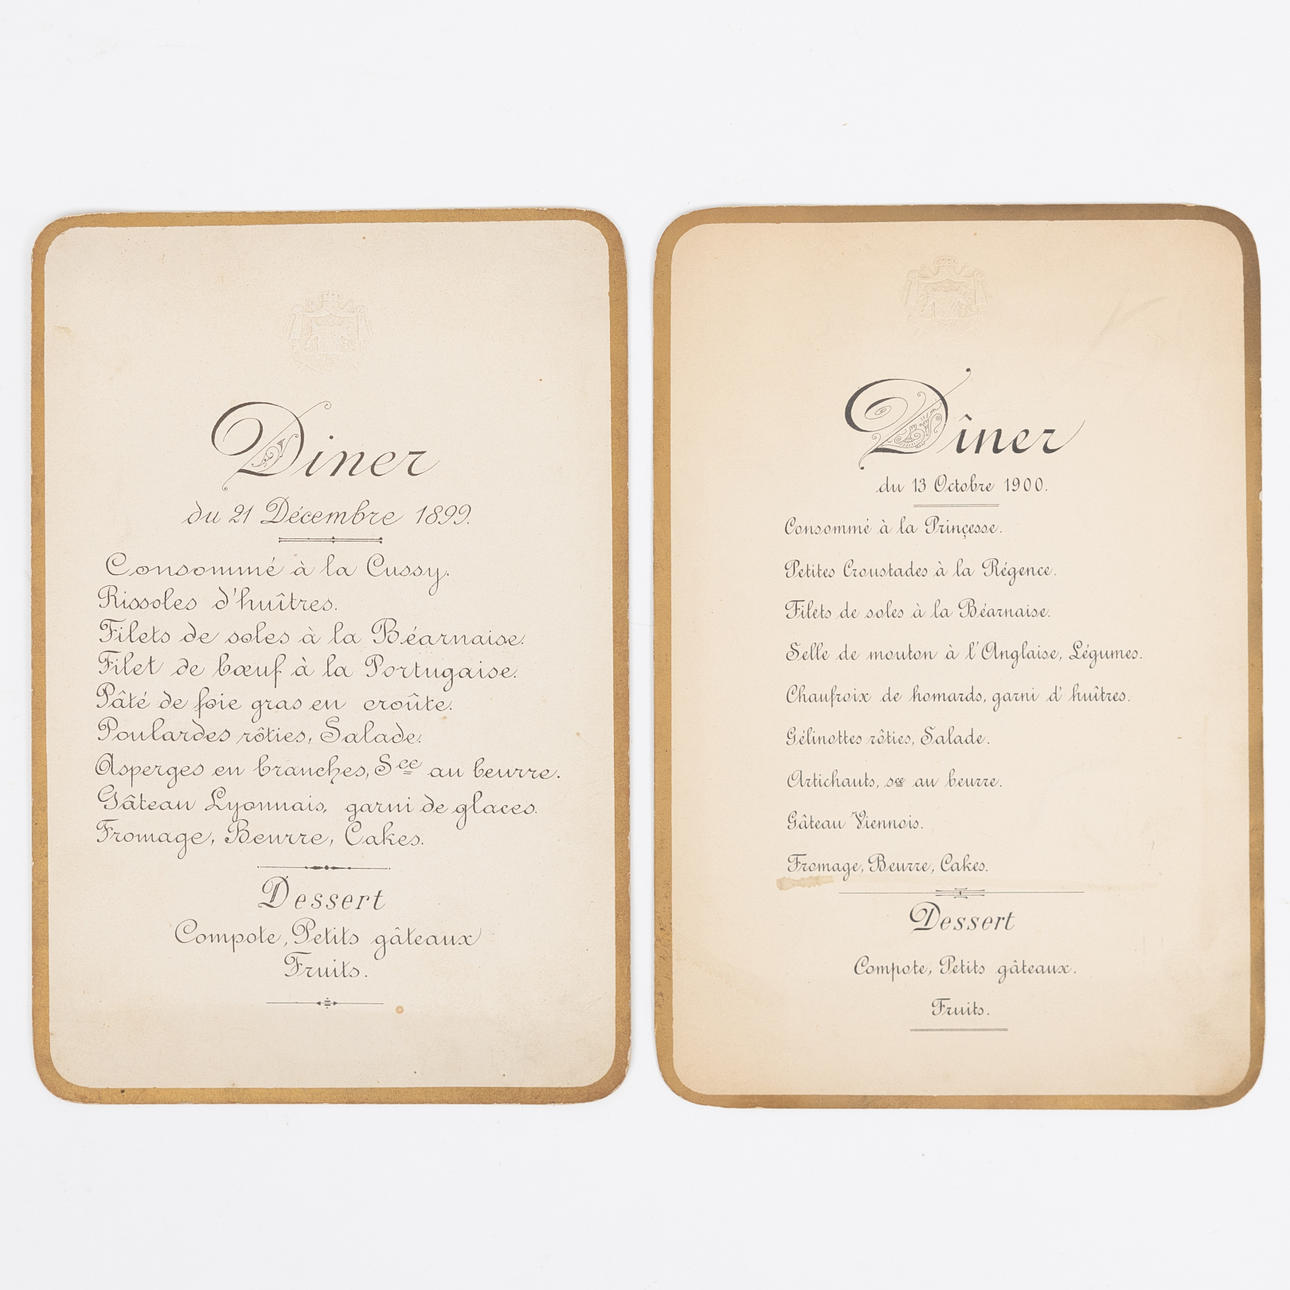 Diner
du 21 Décembre 1899.
Consommé à la Cussy.
Rissoles d'huîtres.
Filets de soles à la Béarnaise.
Filet de bœuf à la Portugaise.
Pâté de foie gras en croûte.
Poulardes rôties, Salade.
Asperges en branches, Sce au beurre.
Gâteau Lyonnais, garni de glaces.
Fromage, Beurre, Cakes.
Dessert
Compote, Petits gâteaux
Fruits.
Dîner
du 13 Octobre 1900.
Consommé à la Prinçesse.
Petites Croustades à la Régence.
Filets de soles à la Béarnaise.
Selle de mouton à l'Anglaise, Légumes.
Chaufroix de homards, garni d'huîtres.
Gélinottes rôties, Salade.
Artichauts, sce au beurre.
Gâteau Viennois.
Fromage, Beurre, Cakes.
Dessert
Compote, Petits gâteaux.
Fruits.